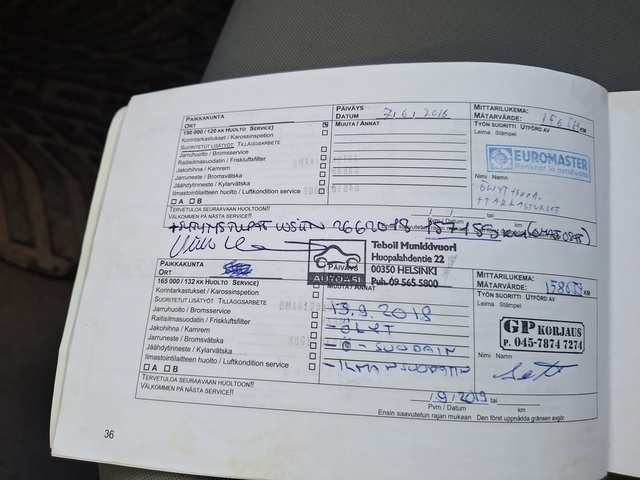 PAIKKAKUNTA
ORT
PÄIVÄYS
DATUM 7.6.2016
MITTARILUKEMA:
MÄTARVÄRDE: KM
150 000 / 120 KK HUOLTO SERVICE)
Korintarkastukset / Karossinspetion
SUORITETUT LISÄTYÖT TILLÄGGSARBETE
Jarruhuolto / Bromsservice
Raitisilmasuodatin / Friskluftsfilter
Jakohihna / Kamrem
Jarruneste / Bromsvätska
Jäähdytinneste / Kylarvätska
Ilmastointilaitteen huolto / Luftkondition service
A B
MUUTA / ANNAT
TYÖN SUORITTI UTFÖRD AV
Leima Stämpel
EUROMASTER
Renkaat ja autohuolto
Nimi Namn
TERVETULOA SEURAAVAAN HUOLTOON!!
VÄLKOMMEN PÅ NÄSTA SERVICE!!
Teboil Munkkivuori
Huopalahdentie 22
00350 HELSINKI
Puh. 09 565 5800
AUTOASI
PAIKKAKUNTA
ORT
PÄIVÄYS
MITTARILUKEMA:
MÄTARVÄRDE: KM
165 000 / 132 KK HUOLTO SERVICE)
Korintarkastukset / Karossinspetion
SUORITETUT LISÄTYÖT TILLÄGGSARBETE
Jarruhuolto / Bromsservice
Raitisilmasuodatin / Friskluftsfilter
Jakohihna / Kamrem
Jarruneste / Bromsvätska
Jäähdytinneste / Kylarvätska
Ilmastointilaitteen huolto / Luftkondition service
A B
MUUTA / ANNAT
13.9.2018
-ÖLJYT
-Ö-SUODATIN
-ILMANSUODATIN
TYÖN SUORITTI UTFÖRD AV
Leima Stämpel
GP KORJAUS
p. 045-7874 7274
Nimi Namn
TERVETULOA SEURAAVAAN HUOLTOON!!
VÄLKOMMEN PÅ NÄSTA SERVICE!!
/9/2019 tai
Pvm / Datum km
Ensin saavutetun rajan mukaan Den först uppnådda gränsen avgör
36